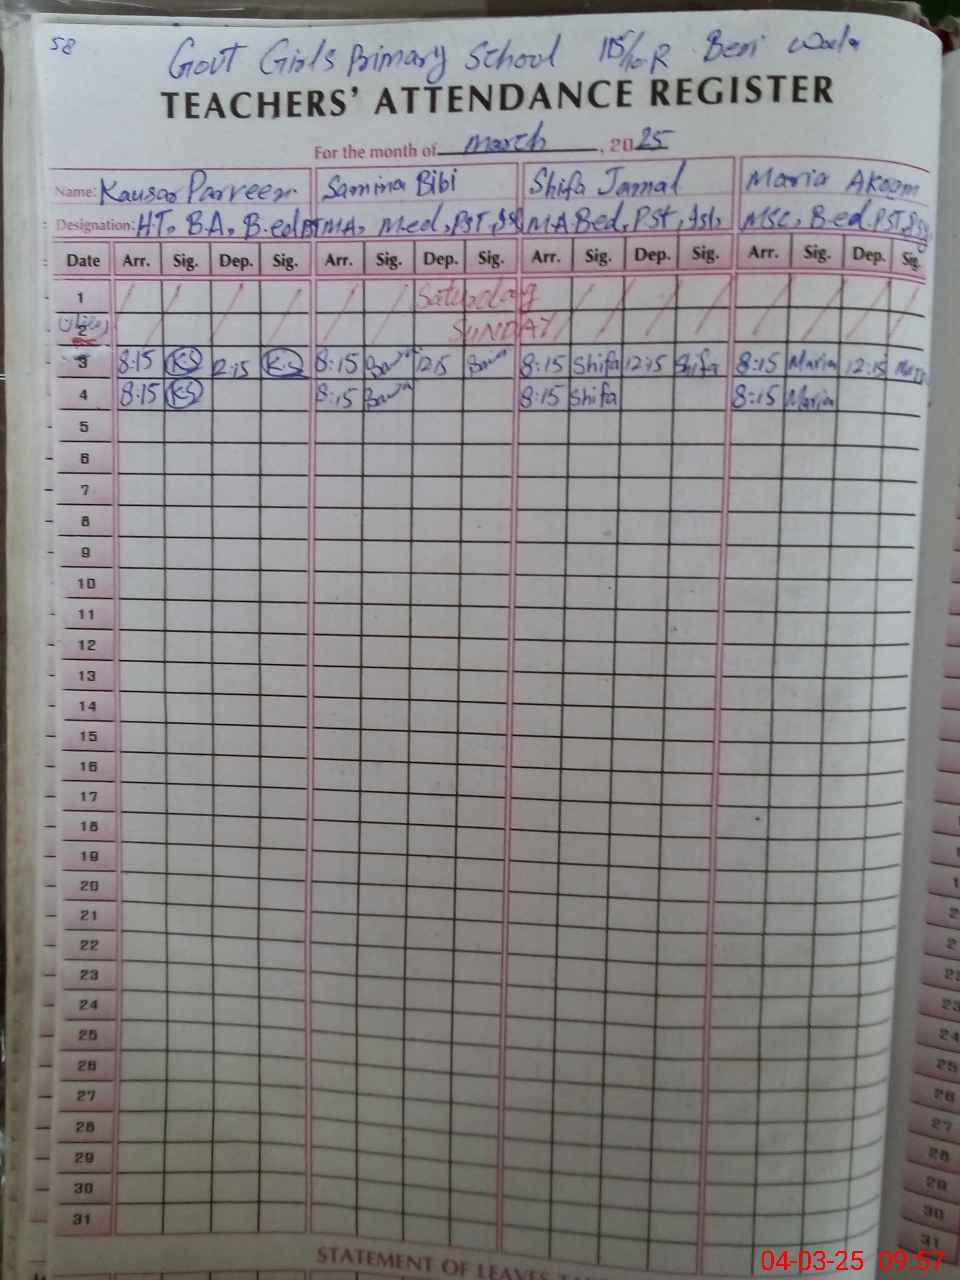 58
Govt Girls Primary School 115/10-R Beri Wala
TEACHERS' ATTENDANCE REGISTER
For the month of March, 2025
Name: Kausar Parveen Samina Bibi Shifa Jamal Maria Akram
Designation: HT, B.A, B.ed MA, M.ed, PST, Isl M.A Bed, PSt, Isl, MSc, B.ed, PST
Date Arr. Sig. Dep. Sig. Arr. Sig. Dep. Sig. Arr. Sig. Dep. Sig. Arr. Sig. Dep. Sig.
1 Saturday
2 SUNDAY
3 8:15 KS 12:15 KS 8:15 12:15 8:15 Shifa 12:15 Shifa 8:15 Maria 12:15 Maria
4 8:15 KS 8:15 8:15 Shifa 8:15 Maria
5
6
7
8
9
10
11
12
13
14
15
16
17
18
19
20
21
22
23
24
25
26
27
28
29
30
31
STATEMENT OF LEAVES
04-03-25 09:57